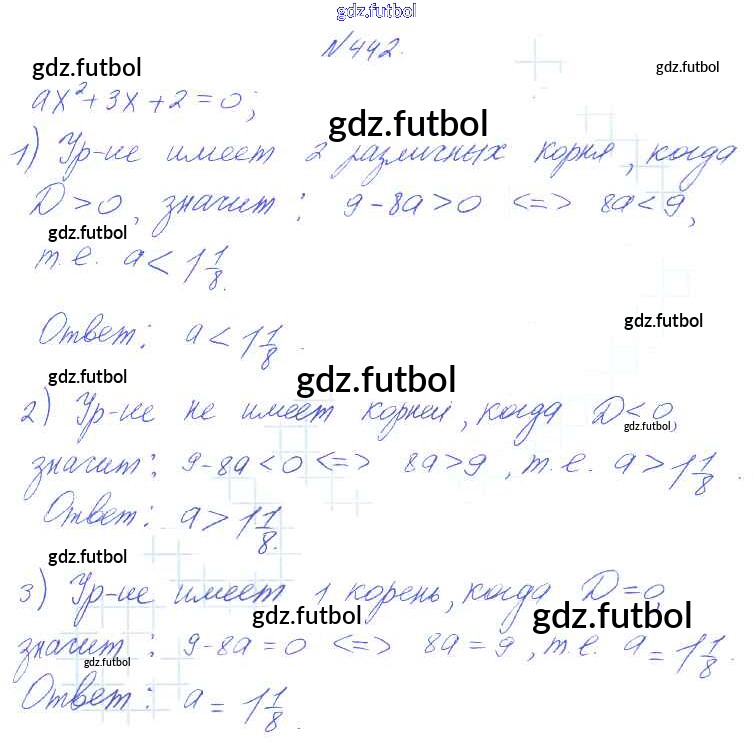 gdz.futbol
№442.
gdz.futbol gdz.futbol
ax²+3x+2=0;
gdz.futbol
1) Ур-ие имеет 2 различных корня, когда
D>0, значит: 9-8a>0 <=> 8a<9,
gdz.futbol
т.е. a<1 1/8.
gdz.futbol
Ответ: a<1 1/8.
gdz.futbol gdz.futbol
2) Ур-ие не имеет корней, когда D<0,
gdz.futbol
значит: 9-8a<0 <=> 8a>9, т.е. a>1 1/8.
Ответ: a>1 1/8.
gdz.futbol
3) Ур-ие имеет 1 корень, когда D=0,
gdz.futbol gdz.futbol
значит: 9-8a=0 <=> 8a=9, т.е. a=1 1/8.
gdz.futbol
Ответ: a=1 1/8.